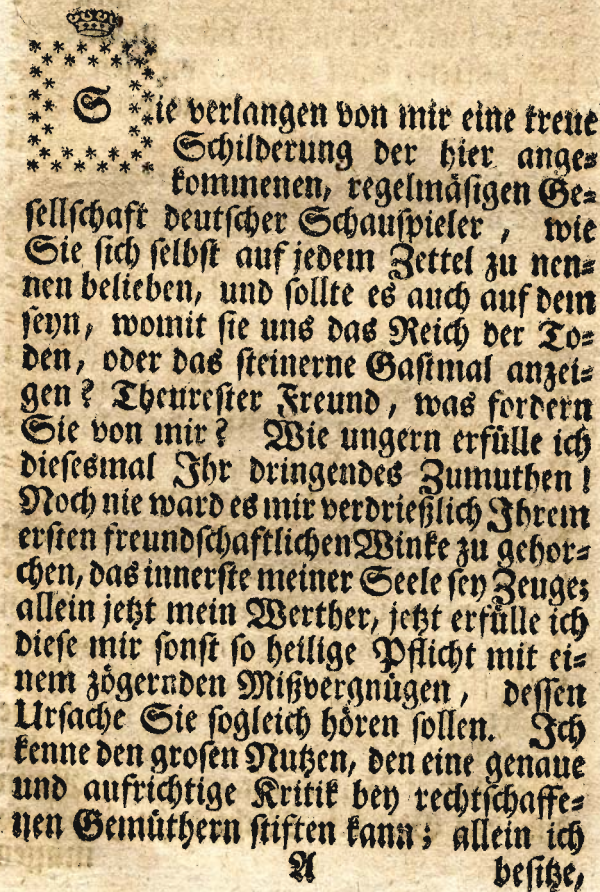 Sie verlangen von mir eine treue
Schilderung der hier ange⸗
kommenen, regelmäsigen Ge⸗
sellschaft deutscher Schauspieler, wie
Sie sich selbst auf jedem Zettel zu nen⸗
nen belieben, und sollte es auch auf dem
seyn, womit sie uns das Reich der To⸗
den, oder das steinerne Gastmal anzei⸗
gen? Theurester Freund, was fordern
Sie von mir? Wie ungern erfülle ich
diesesmal Ihr dringendes Zumuthen!
Noch nie ward es mir verdrießlich Ihrem
ersten freundschaftlichen Winke zu gehor⸗
chen, das innerste meiner Seele sey Zeuge;
allein jetzt mein Werther, jetzt erfülle ich
diese mir sonst so heilige Pflicht mit ei⸗
nem zögernden Mißvergnügen, dessen
Ursache Sie sogleich hören sollen. Ich
kenne den grosen Nutzen, den eine genaue
und aufrichtige Kritik bey rechtschaffe⸗
nen Gemüthern stiften kann; allein ich
A besitze,